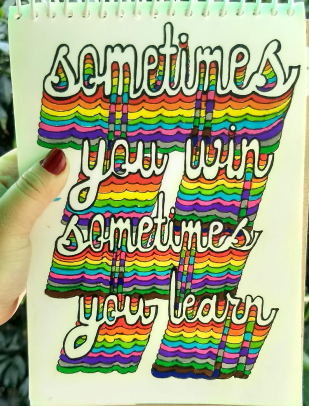 sometimes
you win
sometimes
you learn